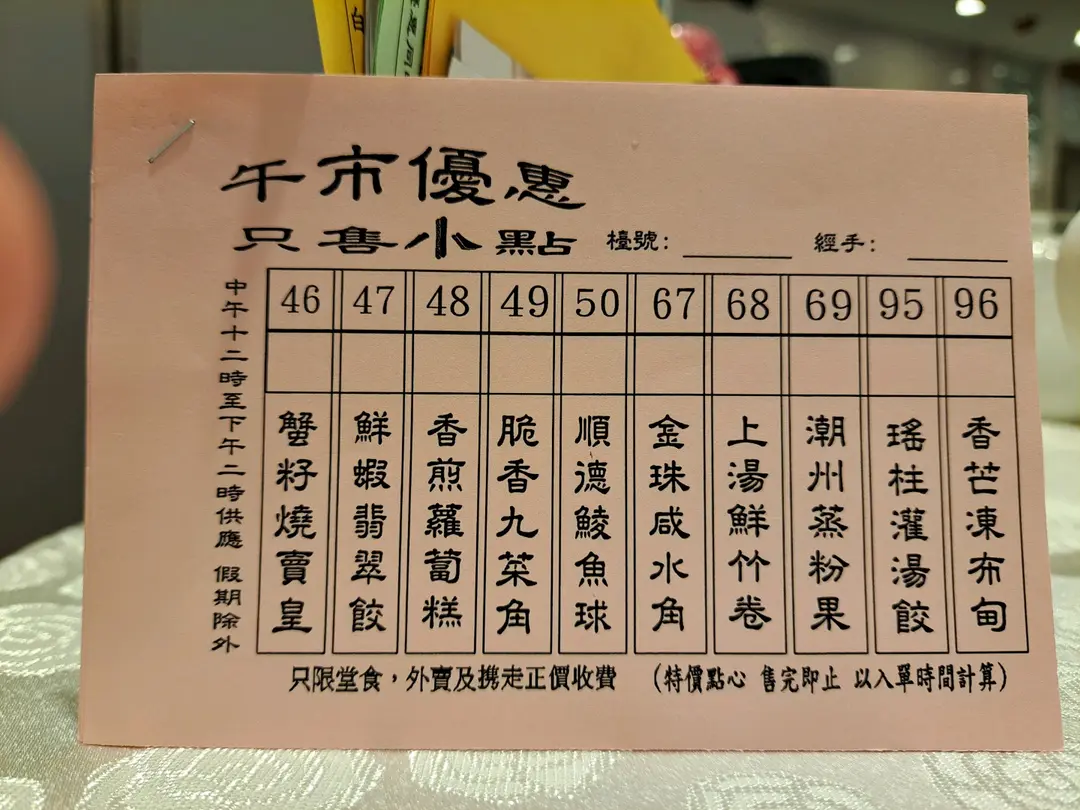 午市優惠
只售小點 檯號： 經手：
中午十二時至下午二時供應 假期除外
46 47 48 49 50 67 68 69 95 96
蟹籽燒賣皇
鮮蝦翡翠餃
香煎蘿蔔糕
脆香九菜角
順德鯪魚球
金珠咸水角
上湯鮮竹卷
潮州蒸粉果
瑤柱灌湯餃
香芒凍布甸
只限堂食，外賣及携走正價收費 （特價點心 售完即止 以入單時間計算）